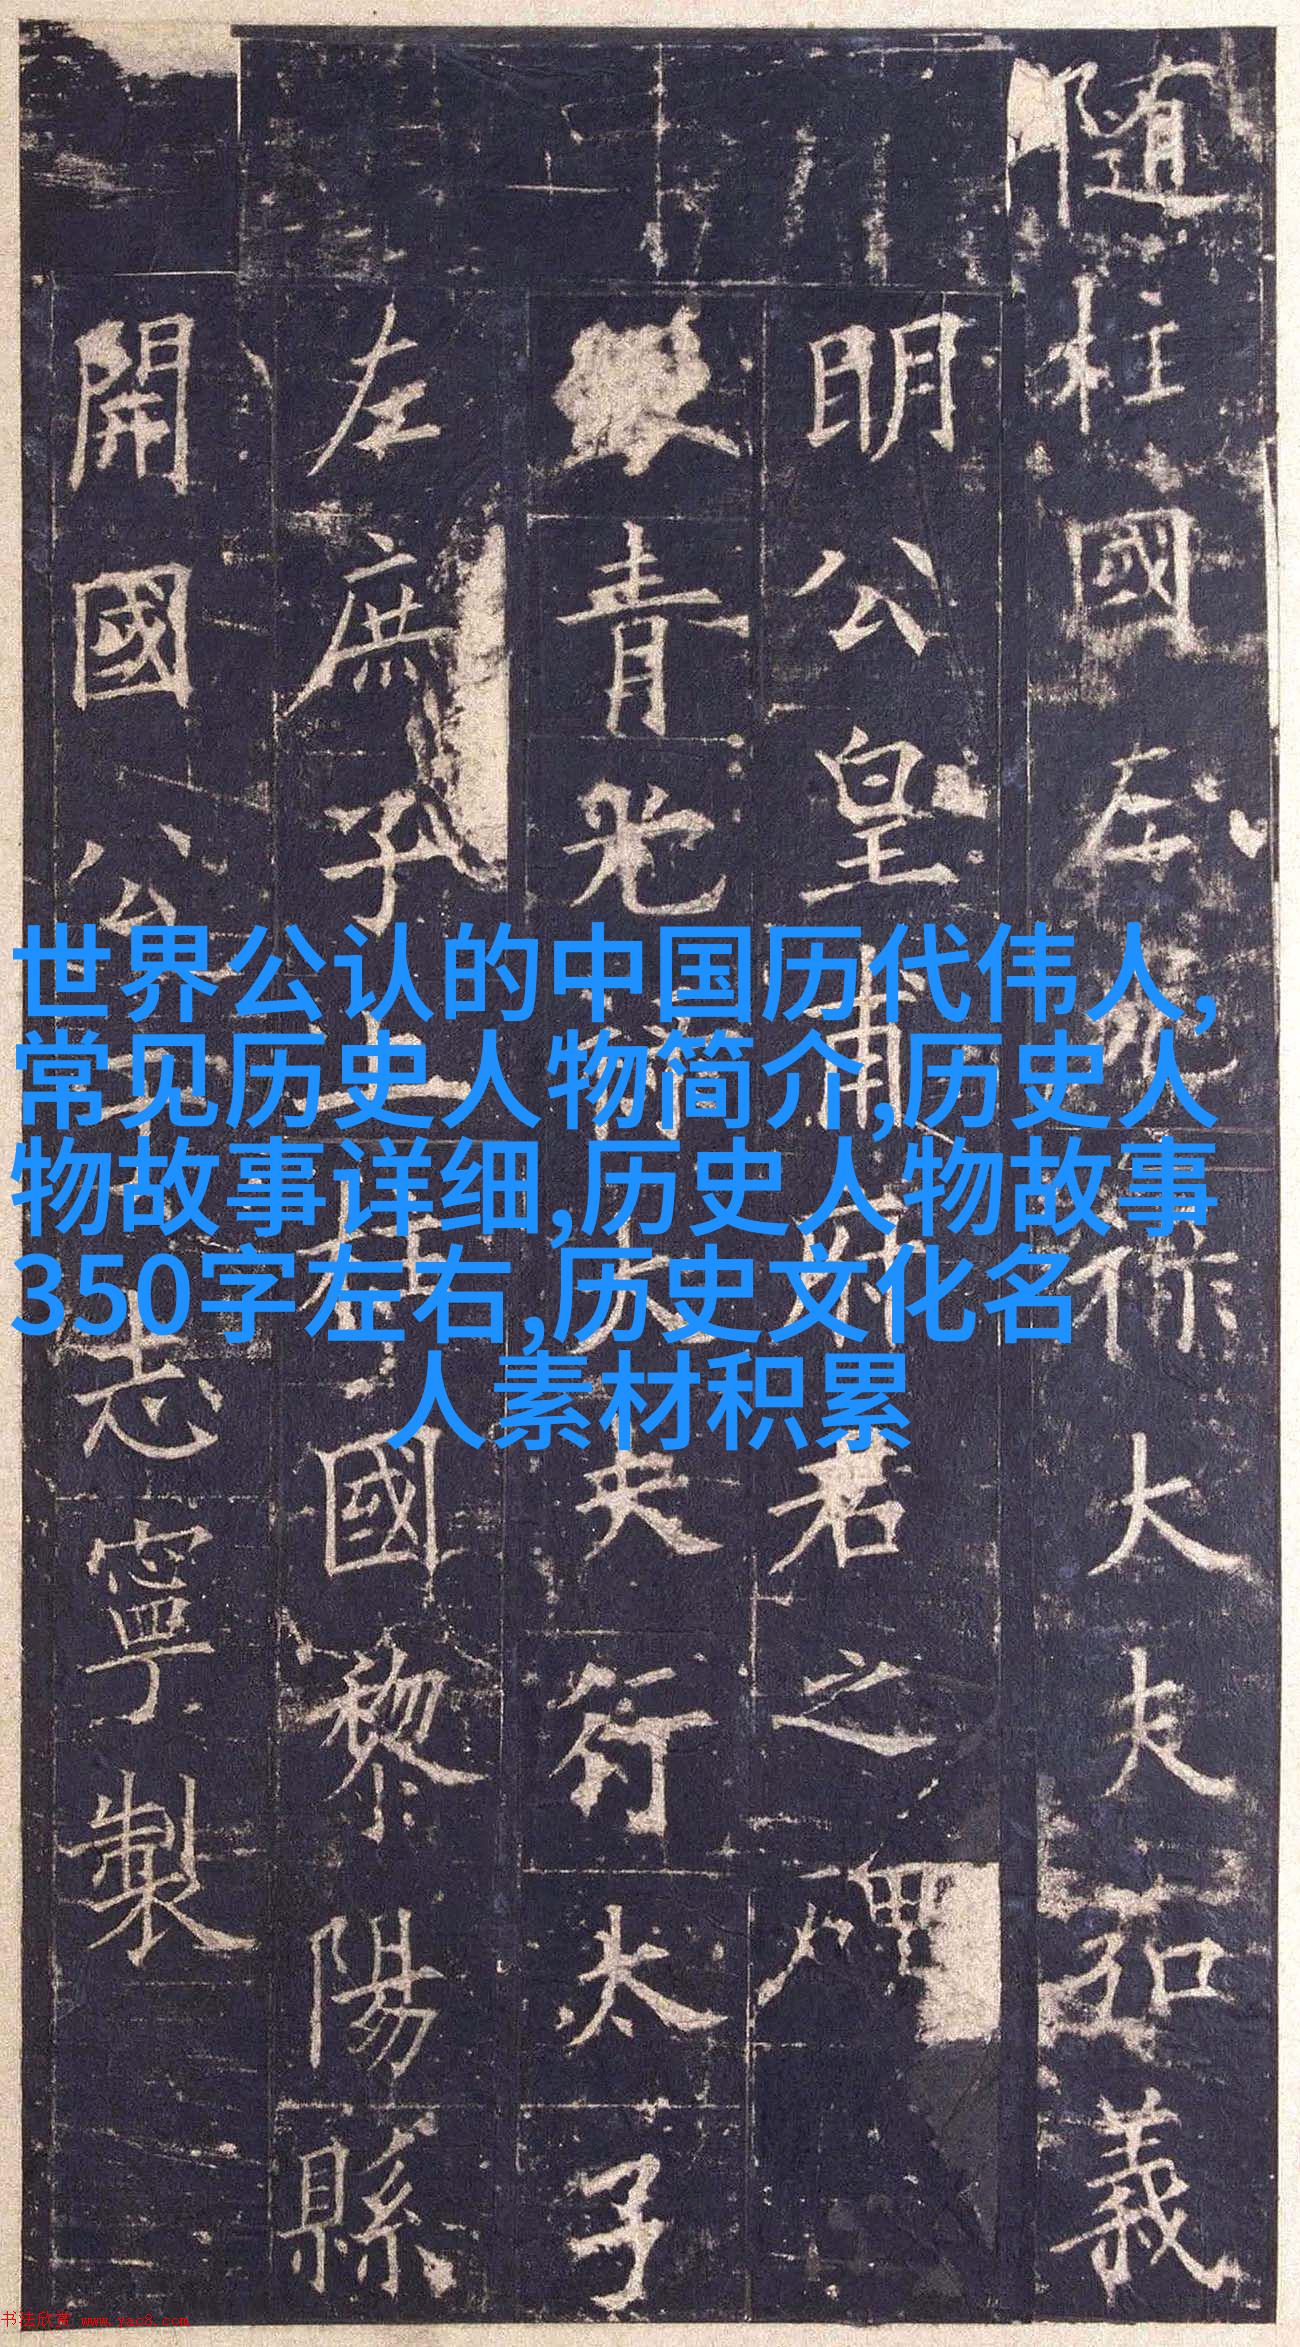 随柱國左光祿大夫弘義
明公皇甫府君之碑
銀青光祿大夫行太子
左庶子上柱國黎陽縣
開國公于志寧製
世界公认的中国历代伟人,
常见历史人物简介,历史人
物故事详细,历史人物故事
350字左右,历史文化名
人素材积累
书法欣赏 www.yac8.com